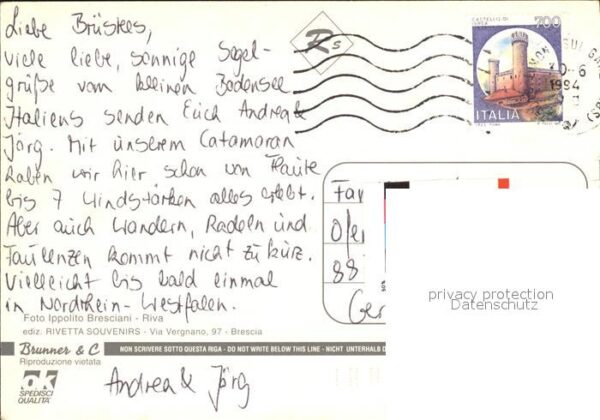 Liebe Brüskes,
viele liebe, sonnige Segel-
grüße vom kleinen Bodensee
Italiens senden Euch Andrea &
Jörg. Mit unserem Catamaran
haben wir hier schon von Flaute
bis 7 Windstärken alles erlebt.
Aber auch Wandern, Radeln und
Faulenzen kommt nicht zu kurz.
Vielleicht bis bald einmal
in Nordrhein-Westfalen.
Andrea & Jörg
Foto Ippolito Bresciani - Riva
ediz. RIVETTA SOUVENIRS - Via Vergnano, 97 - Brescia
Brunner & C
NON SCRIVERE SOTTO QUESTA RIGA - DO NOT WRITE BELOW THIS LINE - NICHT UNTERHALB D
Riproduzione vietata
ok
SPEDISCI
QUALITA'
Rs
CASTELLO DI
IVREA
700
ITALIA
1994
Fam
88
Ger
privacy protection
Datenschutz